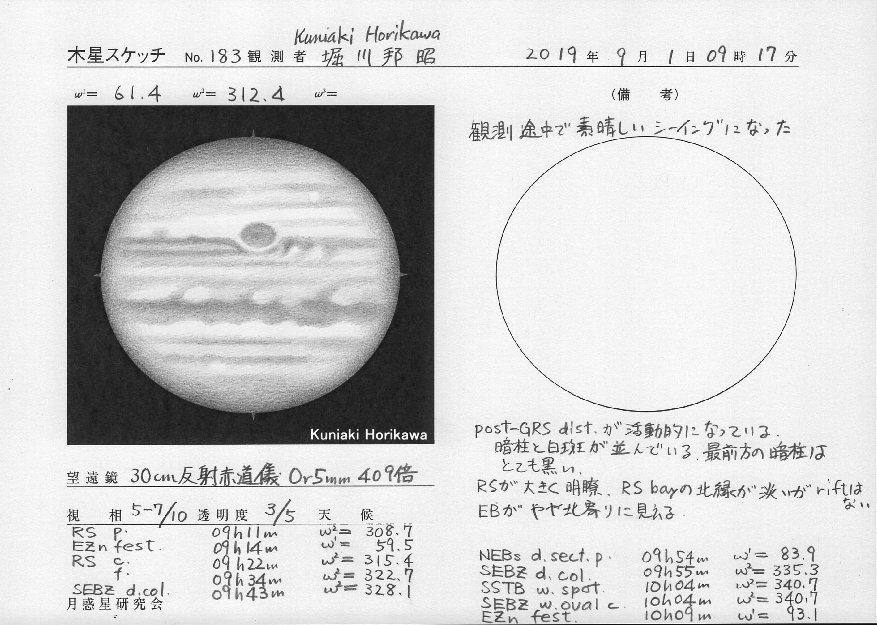 Kuniaki Horikawa
木星スケッチ No. 183 観測者 堀川邦昭 2019年 9月 1日 09時 17分
ω¹= 61.4 ω²= 312.4 ω³=
(備 考)
観測途中で素晴しいシーイングになった
Kuniaki Horikawa
post-GRS dist.が活動的になっている.
暗柱と白斑が並んでいる. 最前方の暗柱は
とても黒い.
RSが大きく明瞭、RS bayの北縁が淡いがriftは
ない
EBがやや北寄りに見える
望遠鏡 30cm反射赤道儀 Or5mm 409倍
視 相 5-7/10 透明度 3/5 天 候
RS p. 09h11m ω²= 308.7
EZn fest. 09h14m ω¹= 59.5
RS c. 09h22m ω²= 315.4
f. 09h34m ω²= 322.7
SEBZ d.col 09h43m ω²= 328.1
月惑星研究会
NEBs d.sect.p. 09h54m ω¹= 83.9
SEBZ d.col. 09h55m ω²= 335.3
SSTB w.spot. 10h04m ω²= 340.7
SEBZ w.oval c. 10h04m ω²= 340.7
EZn fest. 10h09m ω¹= 93.1